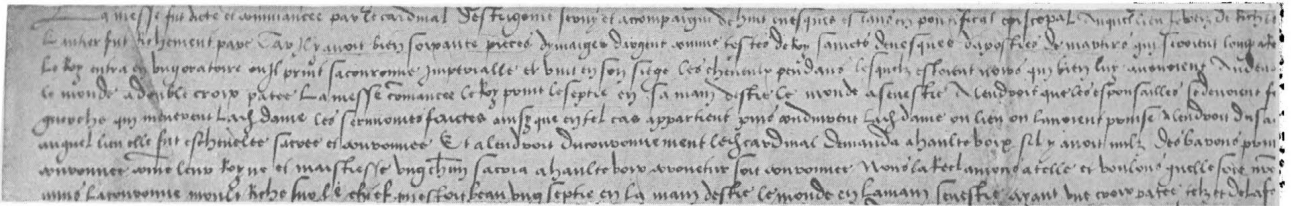 La messe fut dicte et commancee par le cardinal d'Estrigonie servy et acompaigné de huit evesques et tous en pontifical episcopal auquel lieu
L'autier fut richement paré car il y avoit bien soixante pieces d'ymaiges d'argent comme testes de roy sainctz d'evesques d'apostres de martirs qui
Le Roy entra en ung oratoire ou il print sa couronne imperialle et vint en son siege les cheveulx pendans lesquelz estoient noirs qui bien luy
le monde a double croix patee La messe commancee le Roy print le septre en sa main destre le monde a senestre A l'endroit que les espousailles se devoient
qui menerent lad dame les serimonies faictes ainsi que en tel cas appartient puis conduirent lad dame ou lieu ou l'avoient prinse A l'endroit du
auquel lieu elle fut eschevelee sacree et couronnee Et a l'endroit du couronnement led cardinal demanda a haulte voix s'il y avoit nulz des barons
couronnee comme leur Royne et maistresse ung chun s'acria a haulte voix couronnee soit couronnee Nous la reclamons a telle et voulons qu'elle soit
la couronne moult riche sur le chief ung septre en la main destre le monde en la main senestre ayant une croix patee